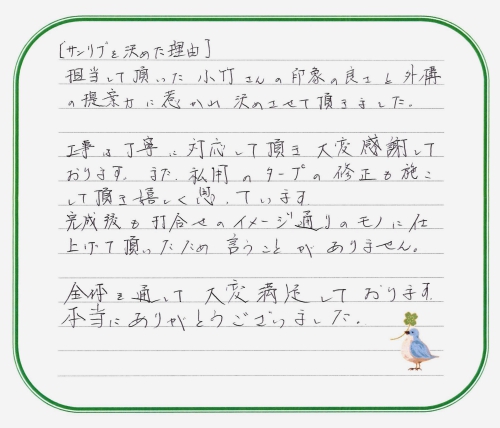 [サンリブを決めた理由]
担当して頂いた 小竹さんの印象の良さと外構
の提案力に惹かれ 決めさせて頂きました。
工事は丁寧に対応して頂き 大変感謝して
おります。また、私用のタープの修正も施こ
して頂き嬉しく思っています。
完成後も打合せのイメージ通りのモノに仕
上げて頂いたため 言うことがありません。
全体を通して 大変満足しております。
本当にありがとうございました。